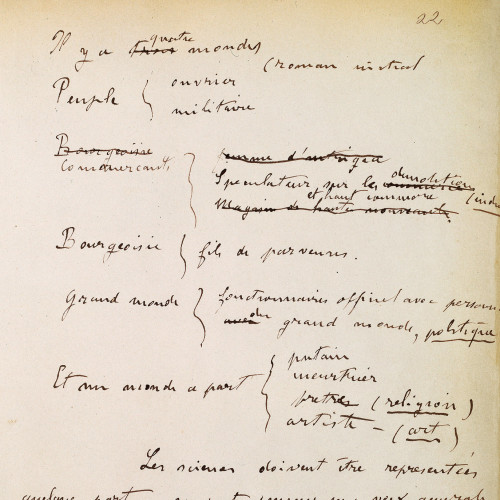 22
Il y a trois quatre mondes
(roman
Peuple { ouvrier
militaire
Bourgeoisie
Commerçants { femme d'intrigue
Spéculateur sur les démolitions
et haut commerce
Magasin de hautes nouveautés
Bourgeoisie { fils de parvenus.
Grand monde { fonctionnaires officiel avec personn
avec du grand monde, politique
Et un monde à part { putain
meurtrier
prêtres (religion)
artiste – (art)
Les sciences doivent être représentées
quelque part